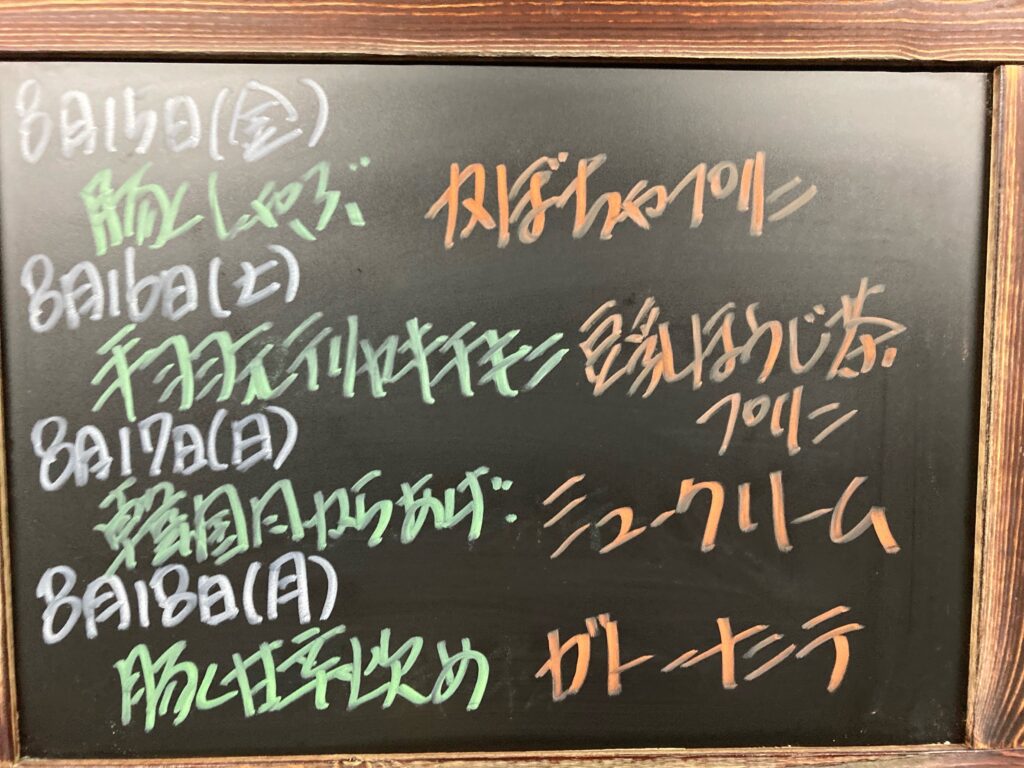 8月15日(金)
豚しゃぶ かぼちゃプリン
8月16日(土)
手羽元テリヤキチキン 豆乳ほうじ茶
プリン
8月17日(日)
韓国風からあげ シュークリーム
8月18日(月)
豚甘辛炊め ガトーナンテ